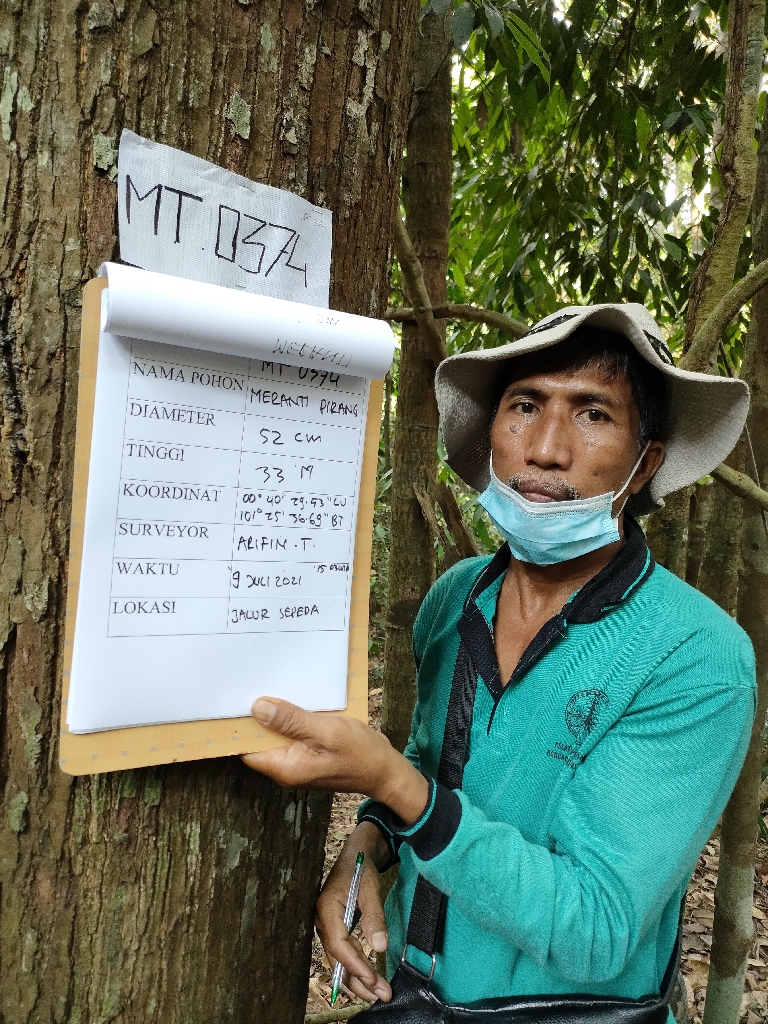 MT.0374
MT 0374
NAMA POHON MERANTI PIRANG
DIAMETER 52 cm
TINGGI 33 M
KOORDINAT 00° 40' 29.43" LU
101° 25' 36.69" BT
SURVEYOR ARIFIN.T.
WAKTU 9 JULI 2021
LOKASI JALUR SEPEDA